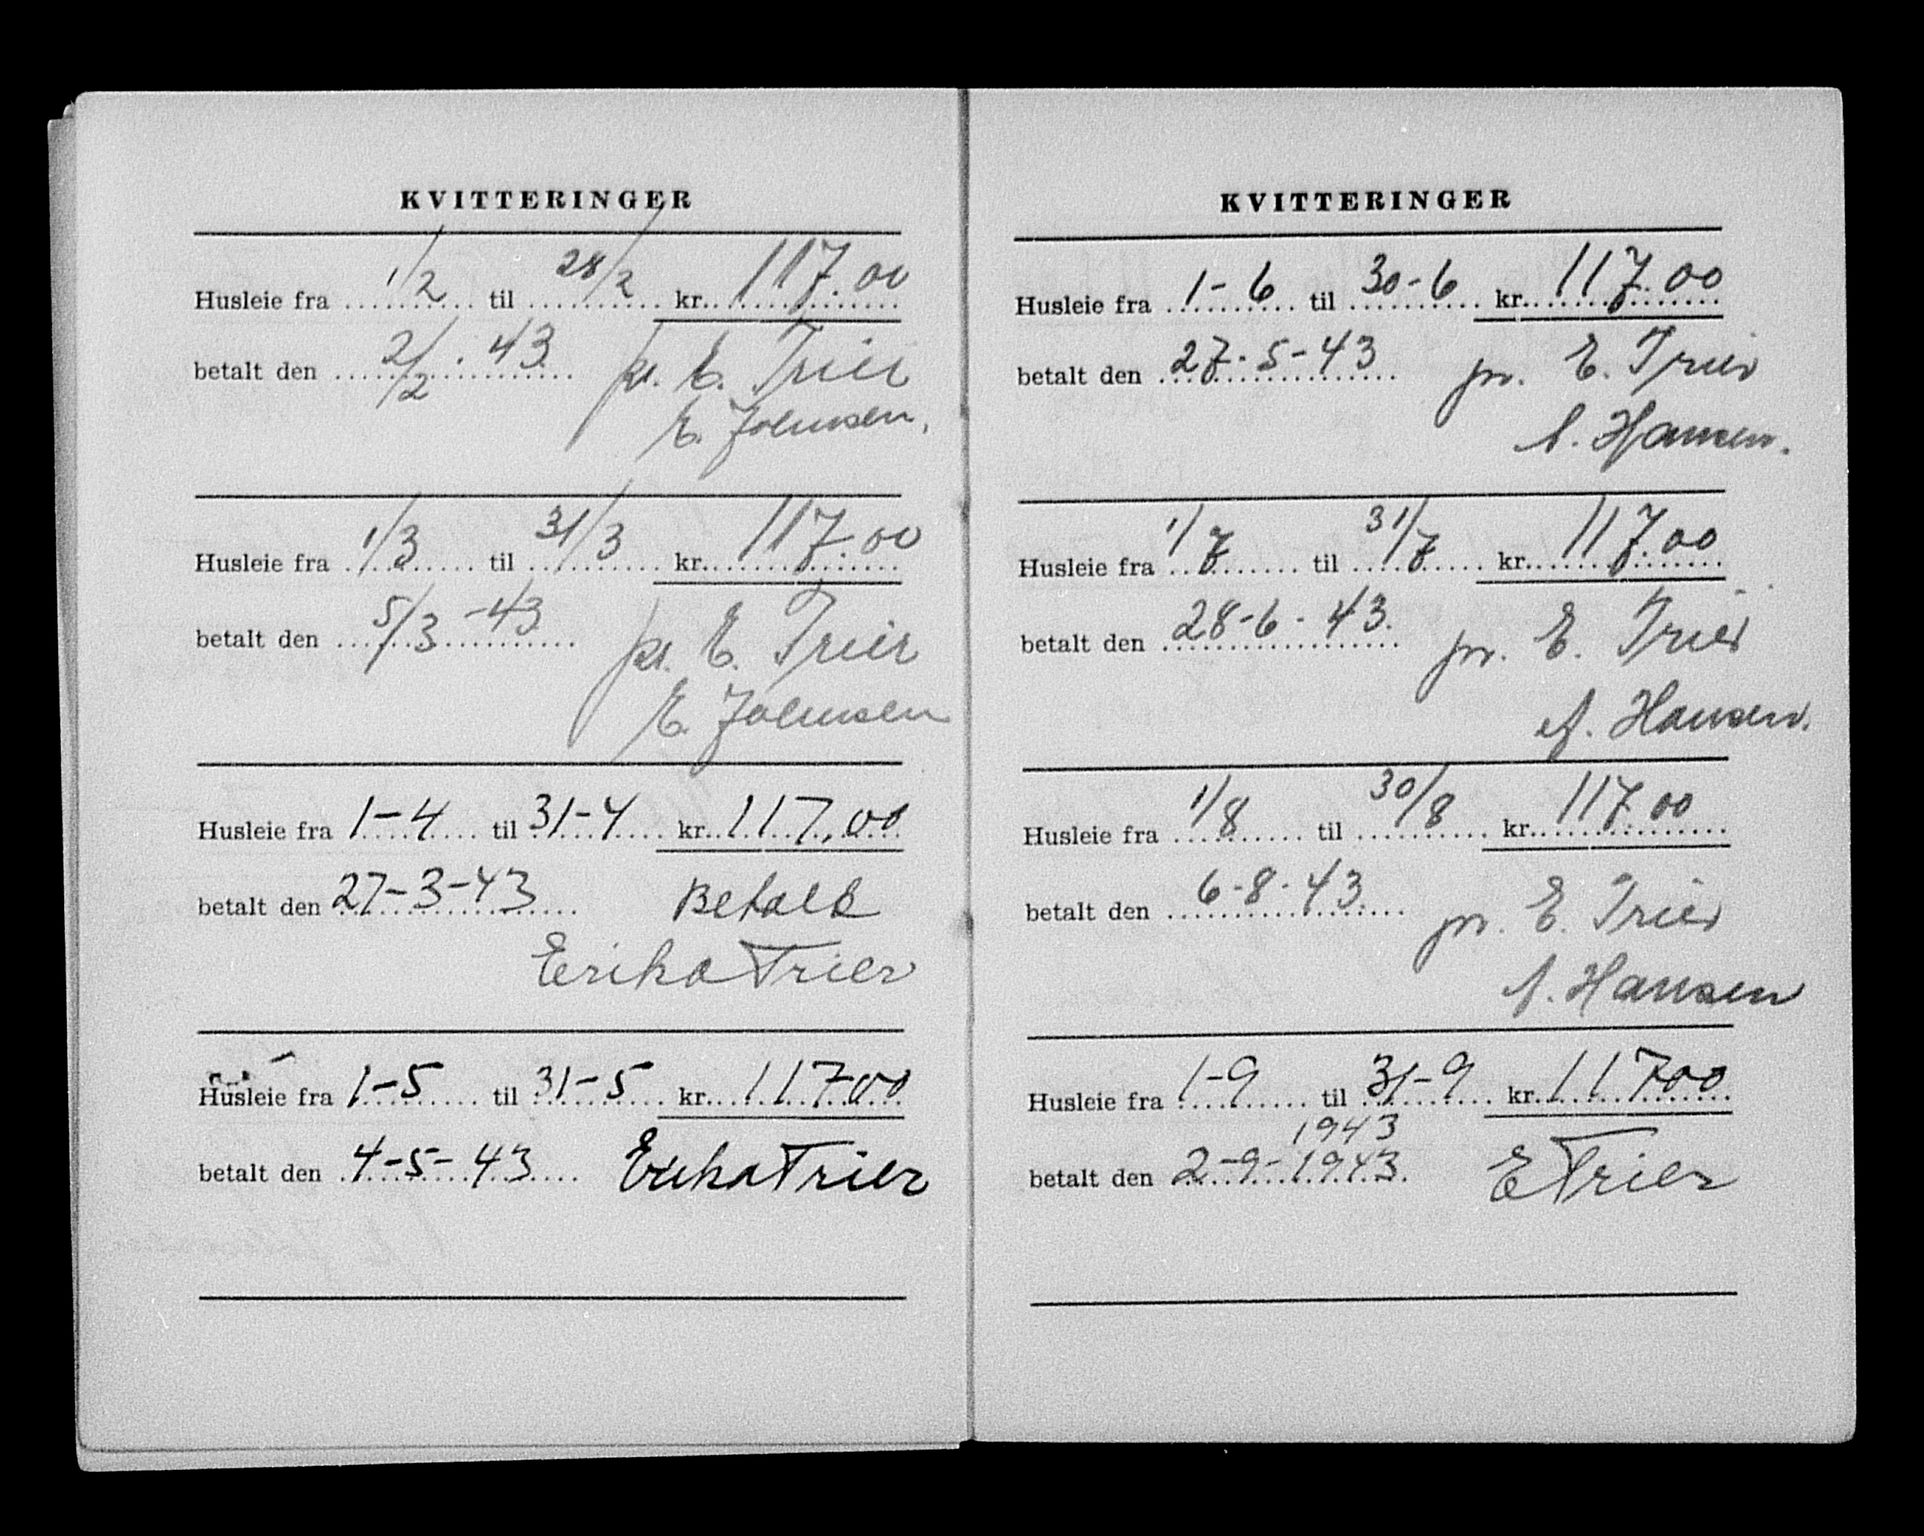 KVITTERINGER
Husleie fra 1/2 til 28/2 kr. 117.00
betalt den 2/2 . 43 pr. E. Trier
E. Johnsen.
Husleie fra 1/3 til 31/3 kr. 117.00
betalt den 5/3 -43 pr. E. Trier
E. Johnsen
Husleie fra 1-4 til 31-4 kr. 117,00
betalt den 27-3-43 Betalt
Erika Trier
Husleie fra 1-5 til 31-5 kr. 117-00
betalt den 4-5-43 Erika Trier
KVITTERINGER
Husleie fra 1-6 til 30-6 kr. 117.00
betalt den 27-5-43 pr. E. Trier
A. Hansen.
Husleie fra 1/7 til 31/7 kr. 117.00
betalt den 28-6-43. pr. E. Trier
A. Hansen.
Husleie fra 1/8 til 30/8 kr. 117.00
betalt den 6-8-43. pr. E. Trier
A. Hansen
Husleie fra 1-9 til 31-9 kr. 117-00
1943
betalt den 2-9-1943. E Trier